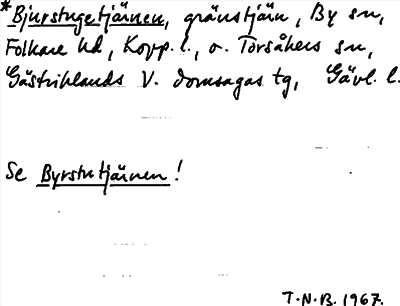 *Bjurstugetjärnen, gränstjärn, By sn,
Folkare hd, Kopp. l., o. Torsåkers sn,
Gästriklands V. domsagas tg, Gävl. l.
Se Byrstutjärnen!
T.N.B. 1967.